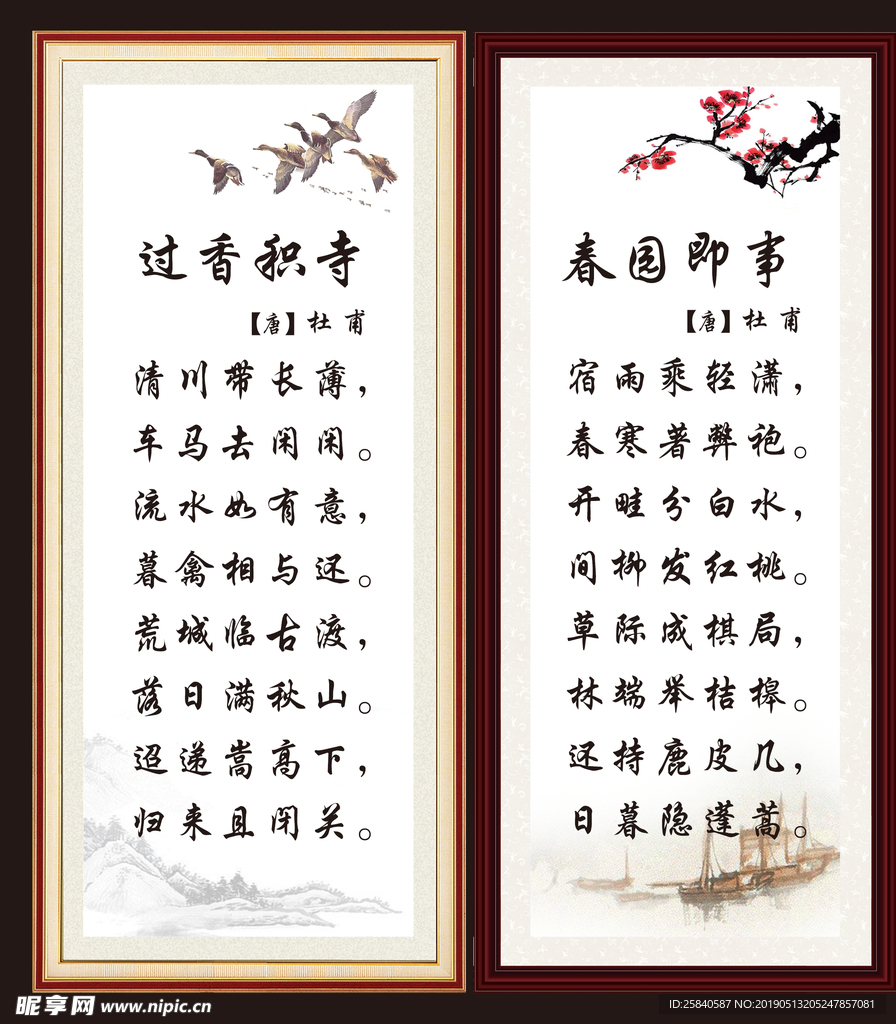 过香积寺
【唐】杜甫
清川带长薄，
车马去闲闲。
流水如有意，
暮禽相与还。
荒城临古渡，
落日满秋山。
迢递嵩高下，
归来且闭关。
春园即事
【唐】杜甫
宿雨乘轻潇，
春寒著弊袍。
开畦分白水，
间柳发红桃。
草际成棋局，
林端举桔槔。
还持鹿皮几，
日暮隐蓬蒿。
昵享网 www.nipic.cn
ID:25840587 NO:20190513205247857081